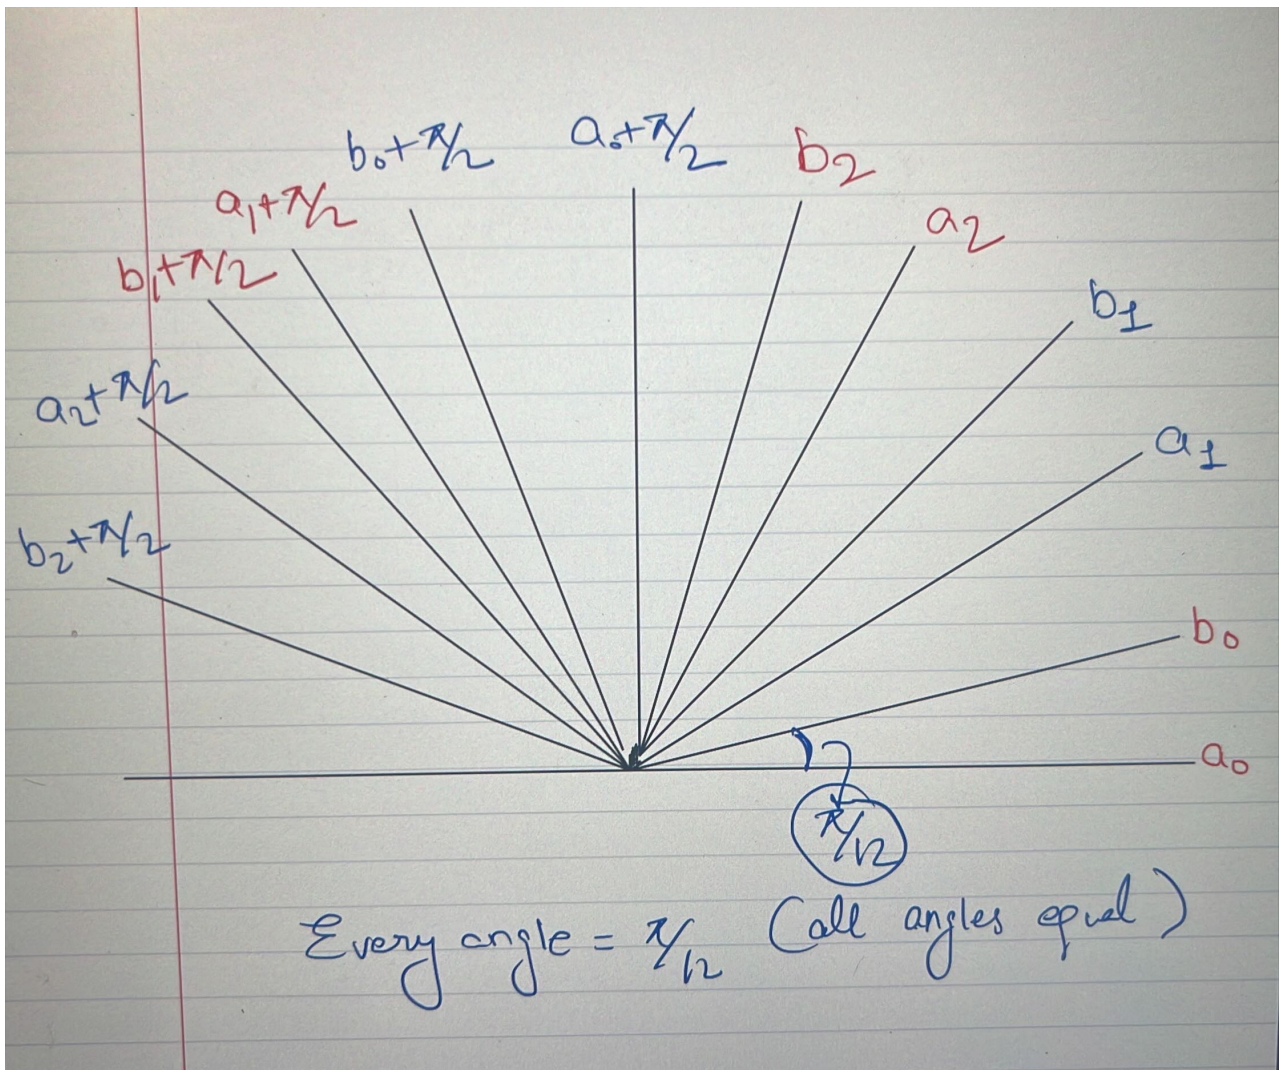 b₀+π/2
a₀+π/2
b₂
a₁+π/2
a₂
b₁+π/2
b₁
a₂+π/2
a₁
b₂+π/2
b₀
a₀
π/12
Every angle = π/12 (all angles equal)